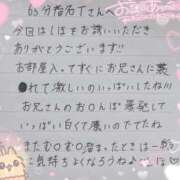 65分指名Tさんへ
今日ははしほをお誘いいただき
ありがとうございます!!
お部屋入ってすぐにお兄さんに襲
●れて激しいのいっぱいしたね!!!
お兄さんのお○んぽ暴発して
いっぱい白くて濃いのでてたね
またむ○む○溜まったときは一緒
に気持ちよくなろうねｪ